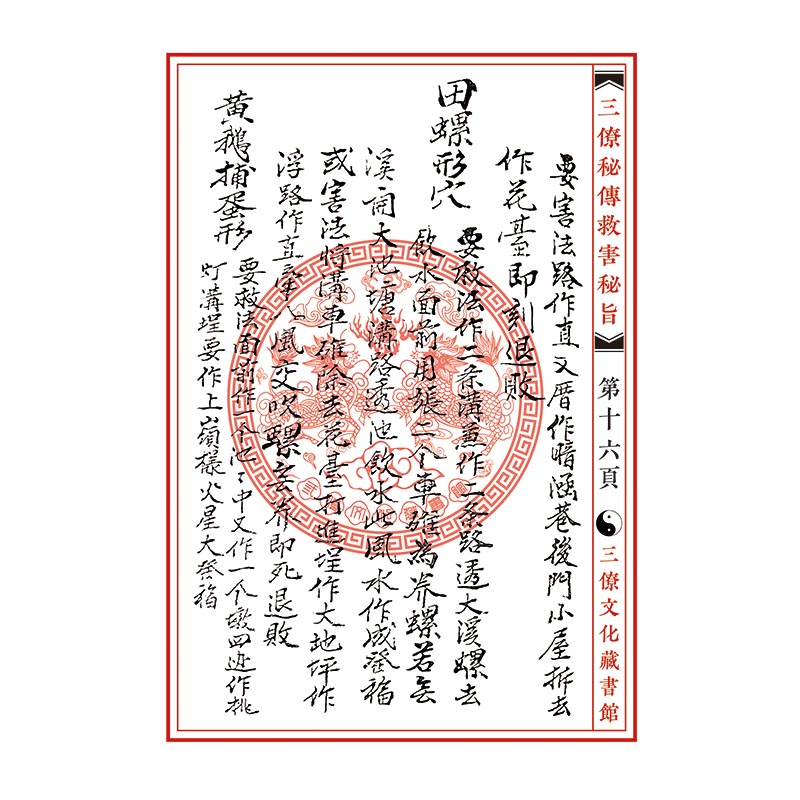 三僚秘傳救害秘旨
第十六頁
三僚文化藏書館
要害法路作直又厝作暗涵巷後門小屋拆去
作花臺即刻退敗
田螺形穴
要救法作二条溝兼作二条路透大溪螺去
飲水面前用張二个車碓為养螺若無
溪開大池塘溝路透池飲水此風水作成發福
或害法将溝車碓除去花臺打進埕作大地坪作
浮路作直 八風交吹螺無养即死退敗
黄鵝捕蛋形
要救法面前作一个池池中又作一个墩四边作挑
灯溝埕要作上嶺樣火星大發福